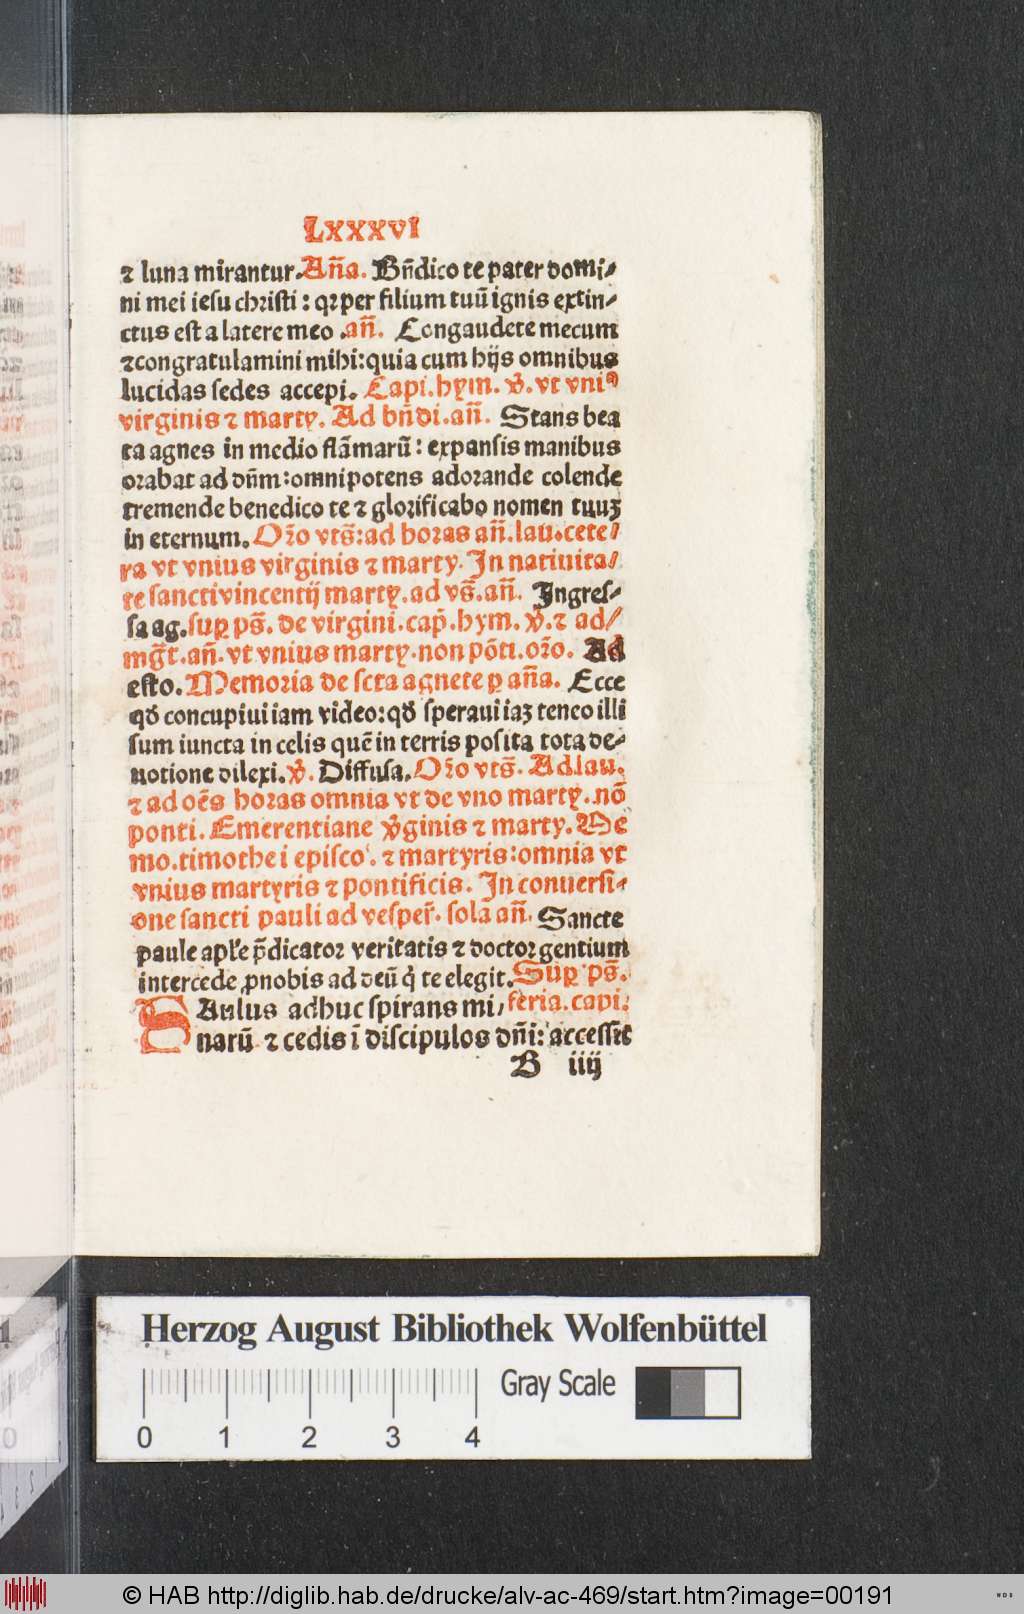 LXXXVI
⁊ luna mirantur. Aña. Bñdico te pater domi⸗
ni mei iesu christi : qꝛ per filium tuū ignis extin⸗
ctus est a latere meo . añ. Congaudete mecum
⁊congratulamini mihi: quia cum hijs omnibus
lucidas sedes accepi. Capi. hym. v̄. vt vniꝰ
virginis ⁊ marty. Ad bñdi. añ. Stans bea
ta agnes in medio flāmarū : expansis manibus
orabat ad dñm: omnipotens adorande colende
tremende benedico te ⁊ glorificabo nomen tuuꝫ
in eternum. Or̄o vts̄: ad horas añ. lau. cete⸗
ra vt vnius virginis ⁊ marty. In natiuita⸗
te sancti vincentij marty. ad vs̄. añ. Ingres⸗
sa ag. suꝑ ps̄. de virgini. cap̄. hym. v̄. ⁊ ad⸗
mḡt. añ. vt vnius marty. non pōti. or̄o. Ad
esto. Memoria de scta agnete ꝑ añа. Ecce
qđ concupiui iam video: qđ speraui iaꝫ teneo illi
sum iuncta in celis quē in terris posita tota de⸗
uotione dilexi. v̄. Diffusa. Or̄o vts̄. Ad lau.
⁊ ad oēs horas omnia vt de vno marty. nō
ponti. Emerentiane v̄ginis ⁊ marty. Me
mo. timothei episco. ⁊ martyris: omnia vt
vnius martyris ⁊ pontificis. In conuersi⸗
one sancti pauli ad vesper̄. sola añ. Sancte
paule apl̄e p̄dicator veritatis ⁊ doctor gentium
intercede ꝓ nobis ad deū q̇ te elegit. Suꝑ ps̄.
SAulus adhuc spirans mi⸗ feria. capi.
narū ⁊ cedis ī discipulos dñi: accessit
B iiij
Herzog August Bibliothek Wolfenbüttel
Gray Scale
0 1 2 3 4
© HAB http://diglib.hab.de/drucke/alv-ac-469/start.htm?image=00191